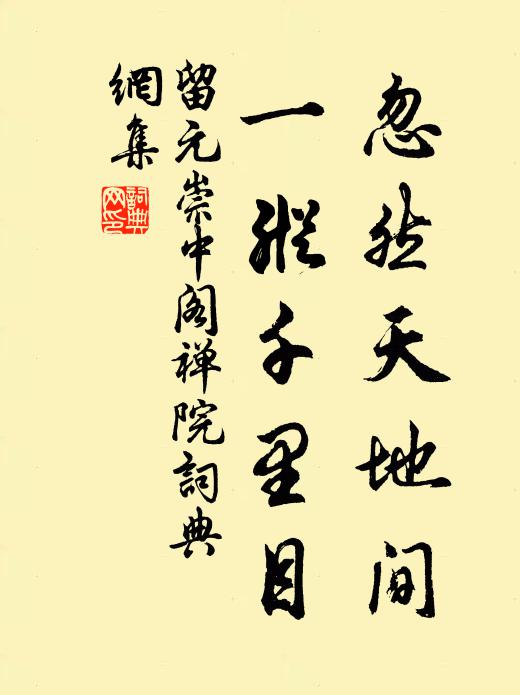 忽然天地間
一縱千里目
留元崇中阁禅院詞典
網集
詞典
网印